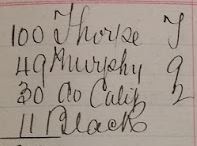 100 Thorpe J
49 Murphy 9
30 do Calip 2
11 Black